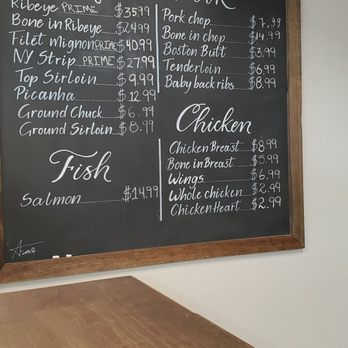 Ribeye PRIME $35.99
Bone in Ribeye $24.99
Filet Mignon PRIME $40.99
NY Strip PRIME $27.99
Top Sirloin $9.99
Picanha $12.99
Ground Chuck $6.99
Ground Sirloin $8.99
Fish
Salmon $14.99
Pork chop $7.99
Bone in chop $14.99
Boston Butt $3.99
Tenderloin $6.99
Baby back ribs $8.99
Chicken
Chicken Breast $8.99
Bone in Breast $5.99
Wings $6.99
Whole chicken $2.99
Chicken Heart $2.99